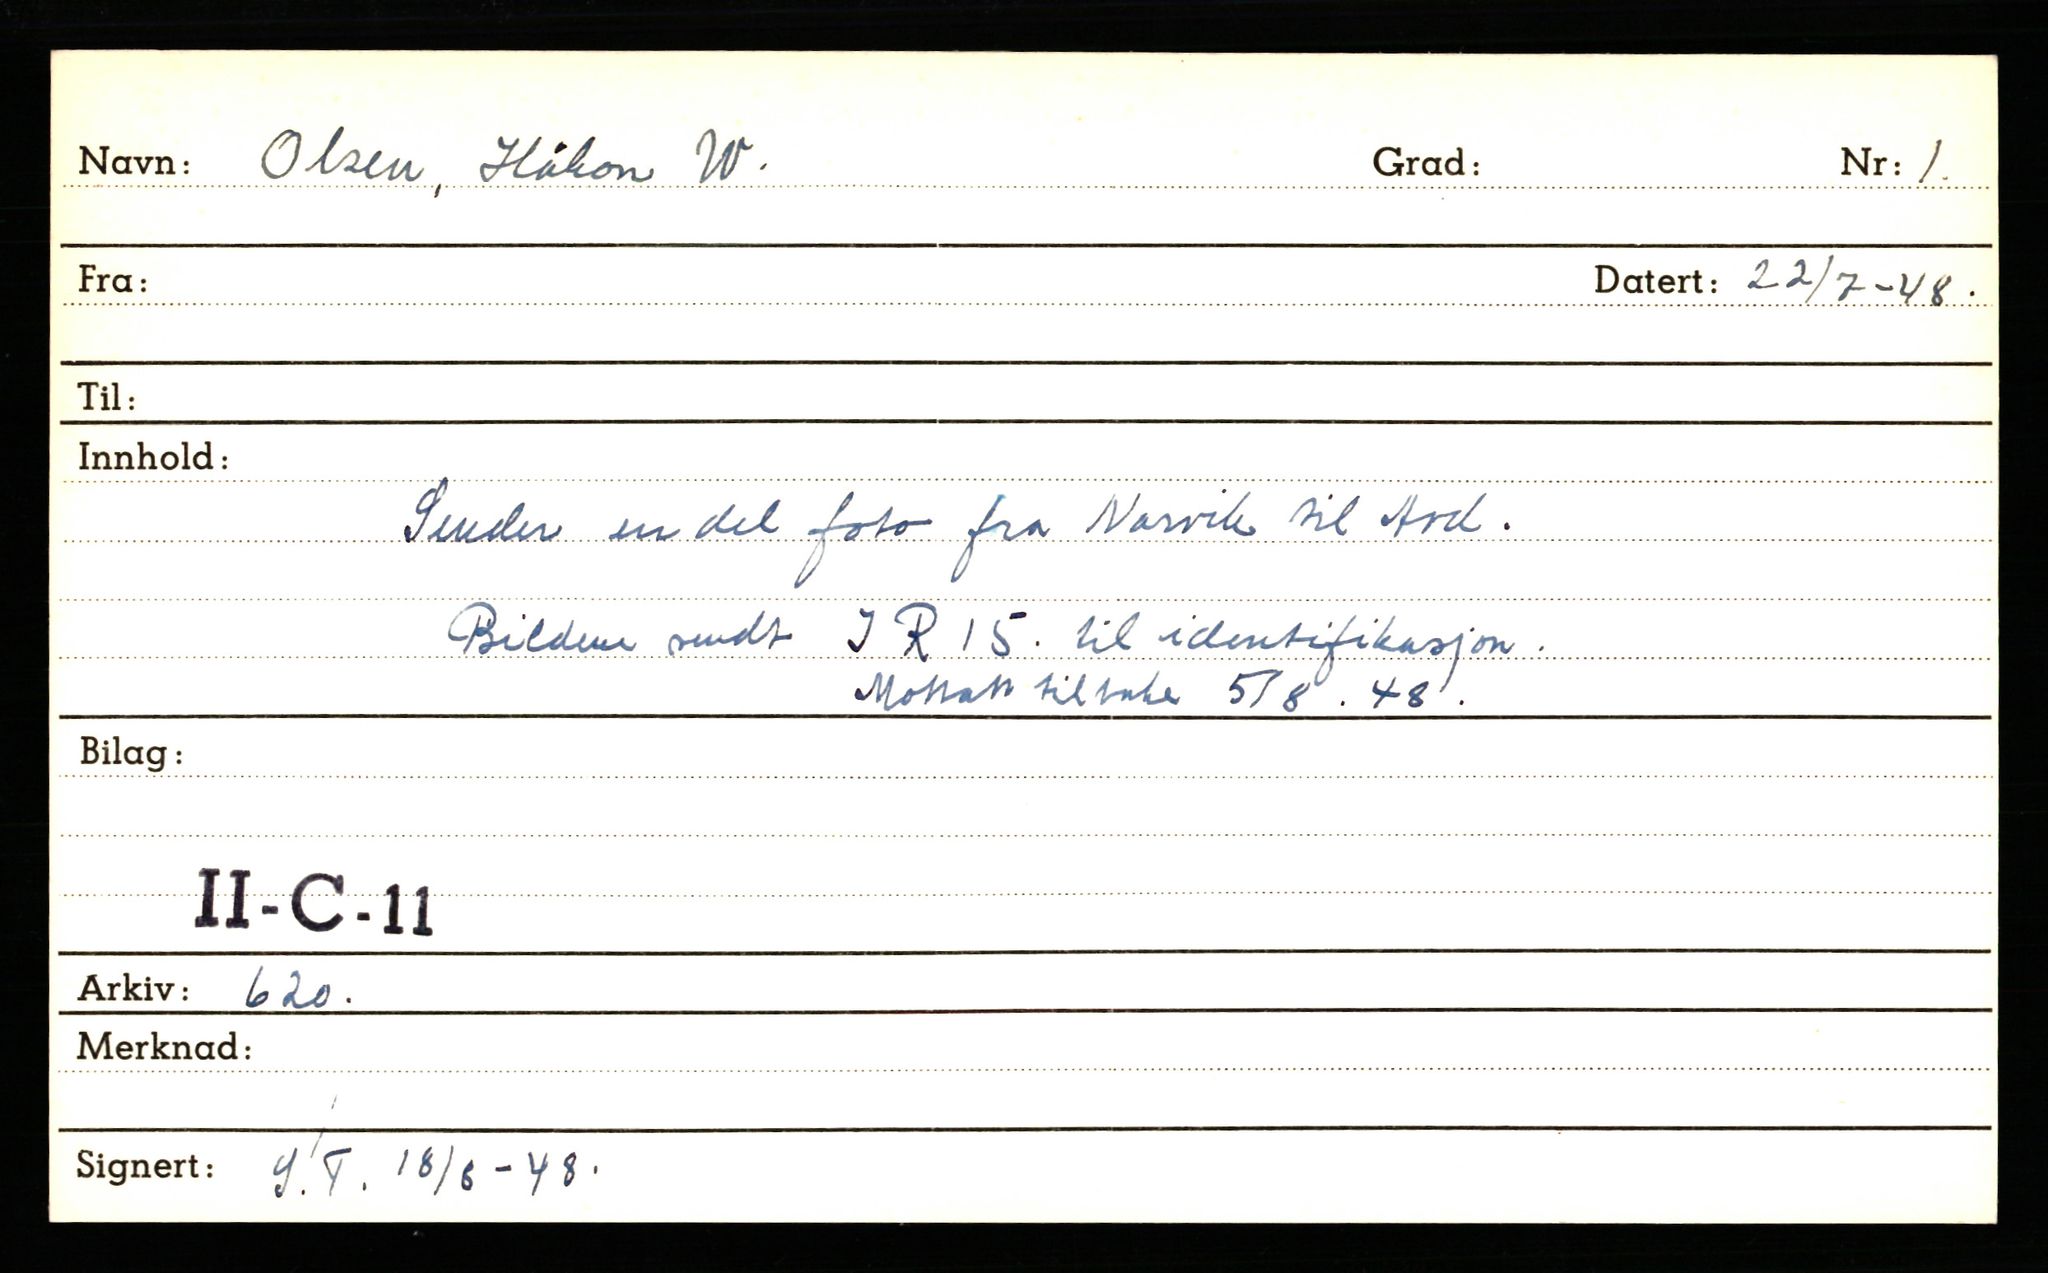 Navn: Olsen, Håkon W. Grad: Nr: 1.
Fra: Datert: 22/7-48.
Til:
Innhold:
Sender en del foto fra Narvik til Avd.
Bildene sendt IR 15. til identifikasjon.
Mottatt tilbake 5/8.48.
Bilag:
II-C-11
Arkiv: 620.
Merknad:
Signert: S.T. 18/8-48.